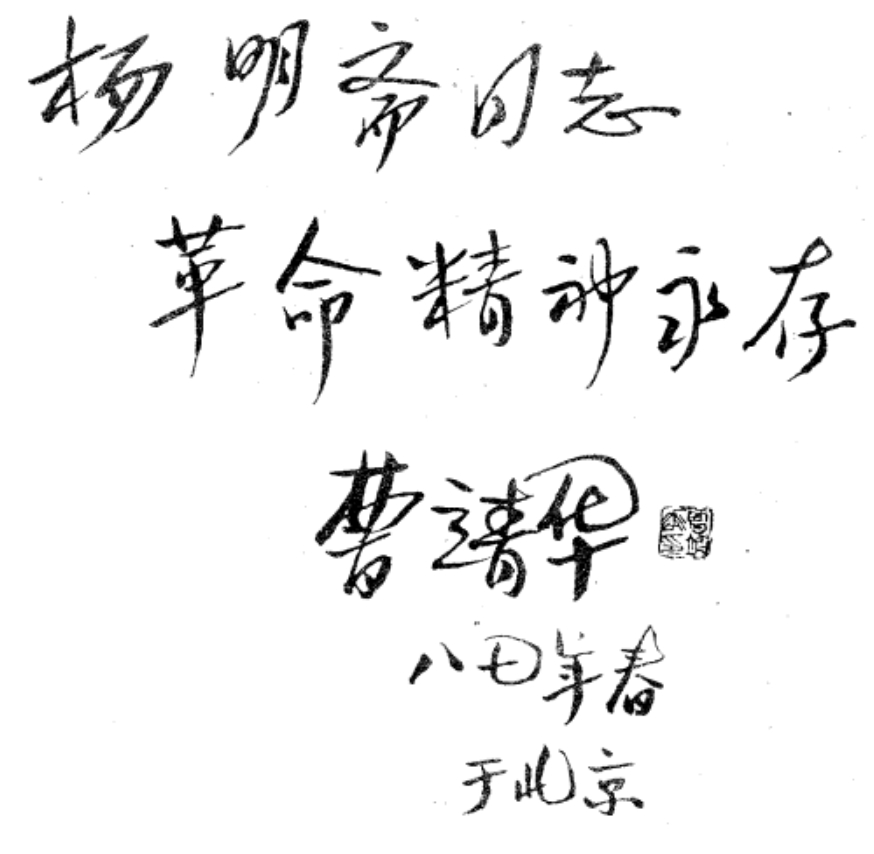 杨明斋同志
革命精神永存
曹靖华
八七年春
于北京